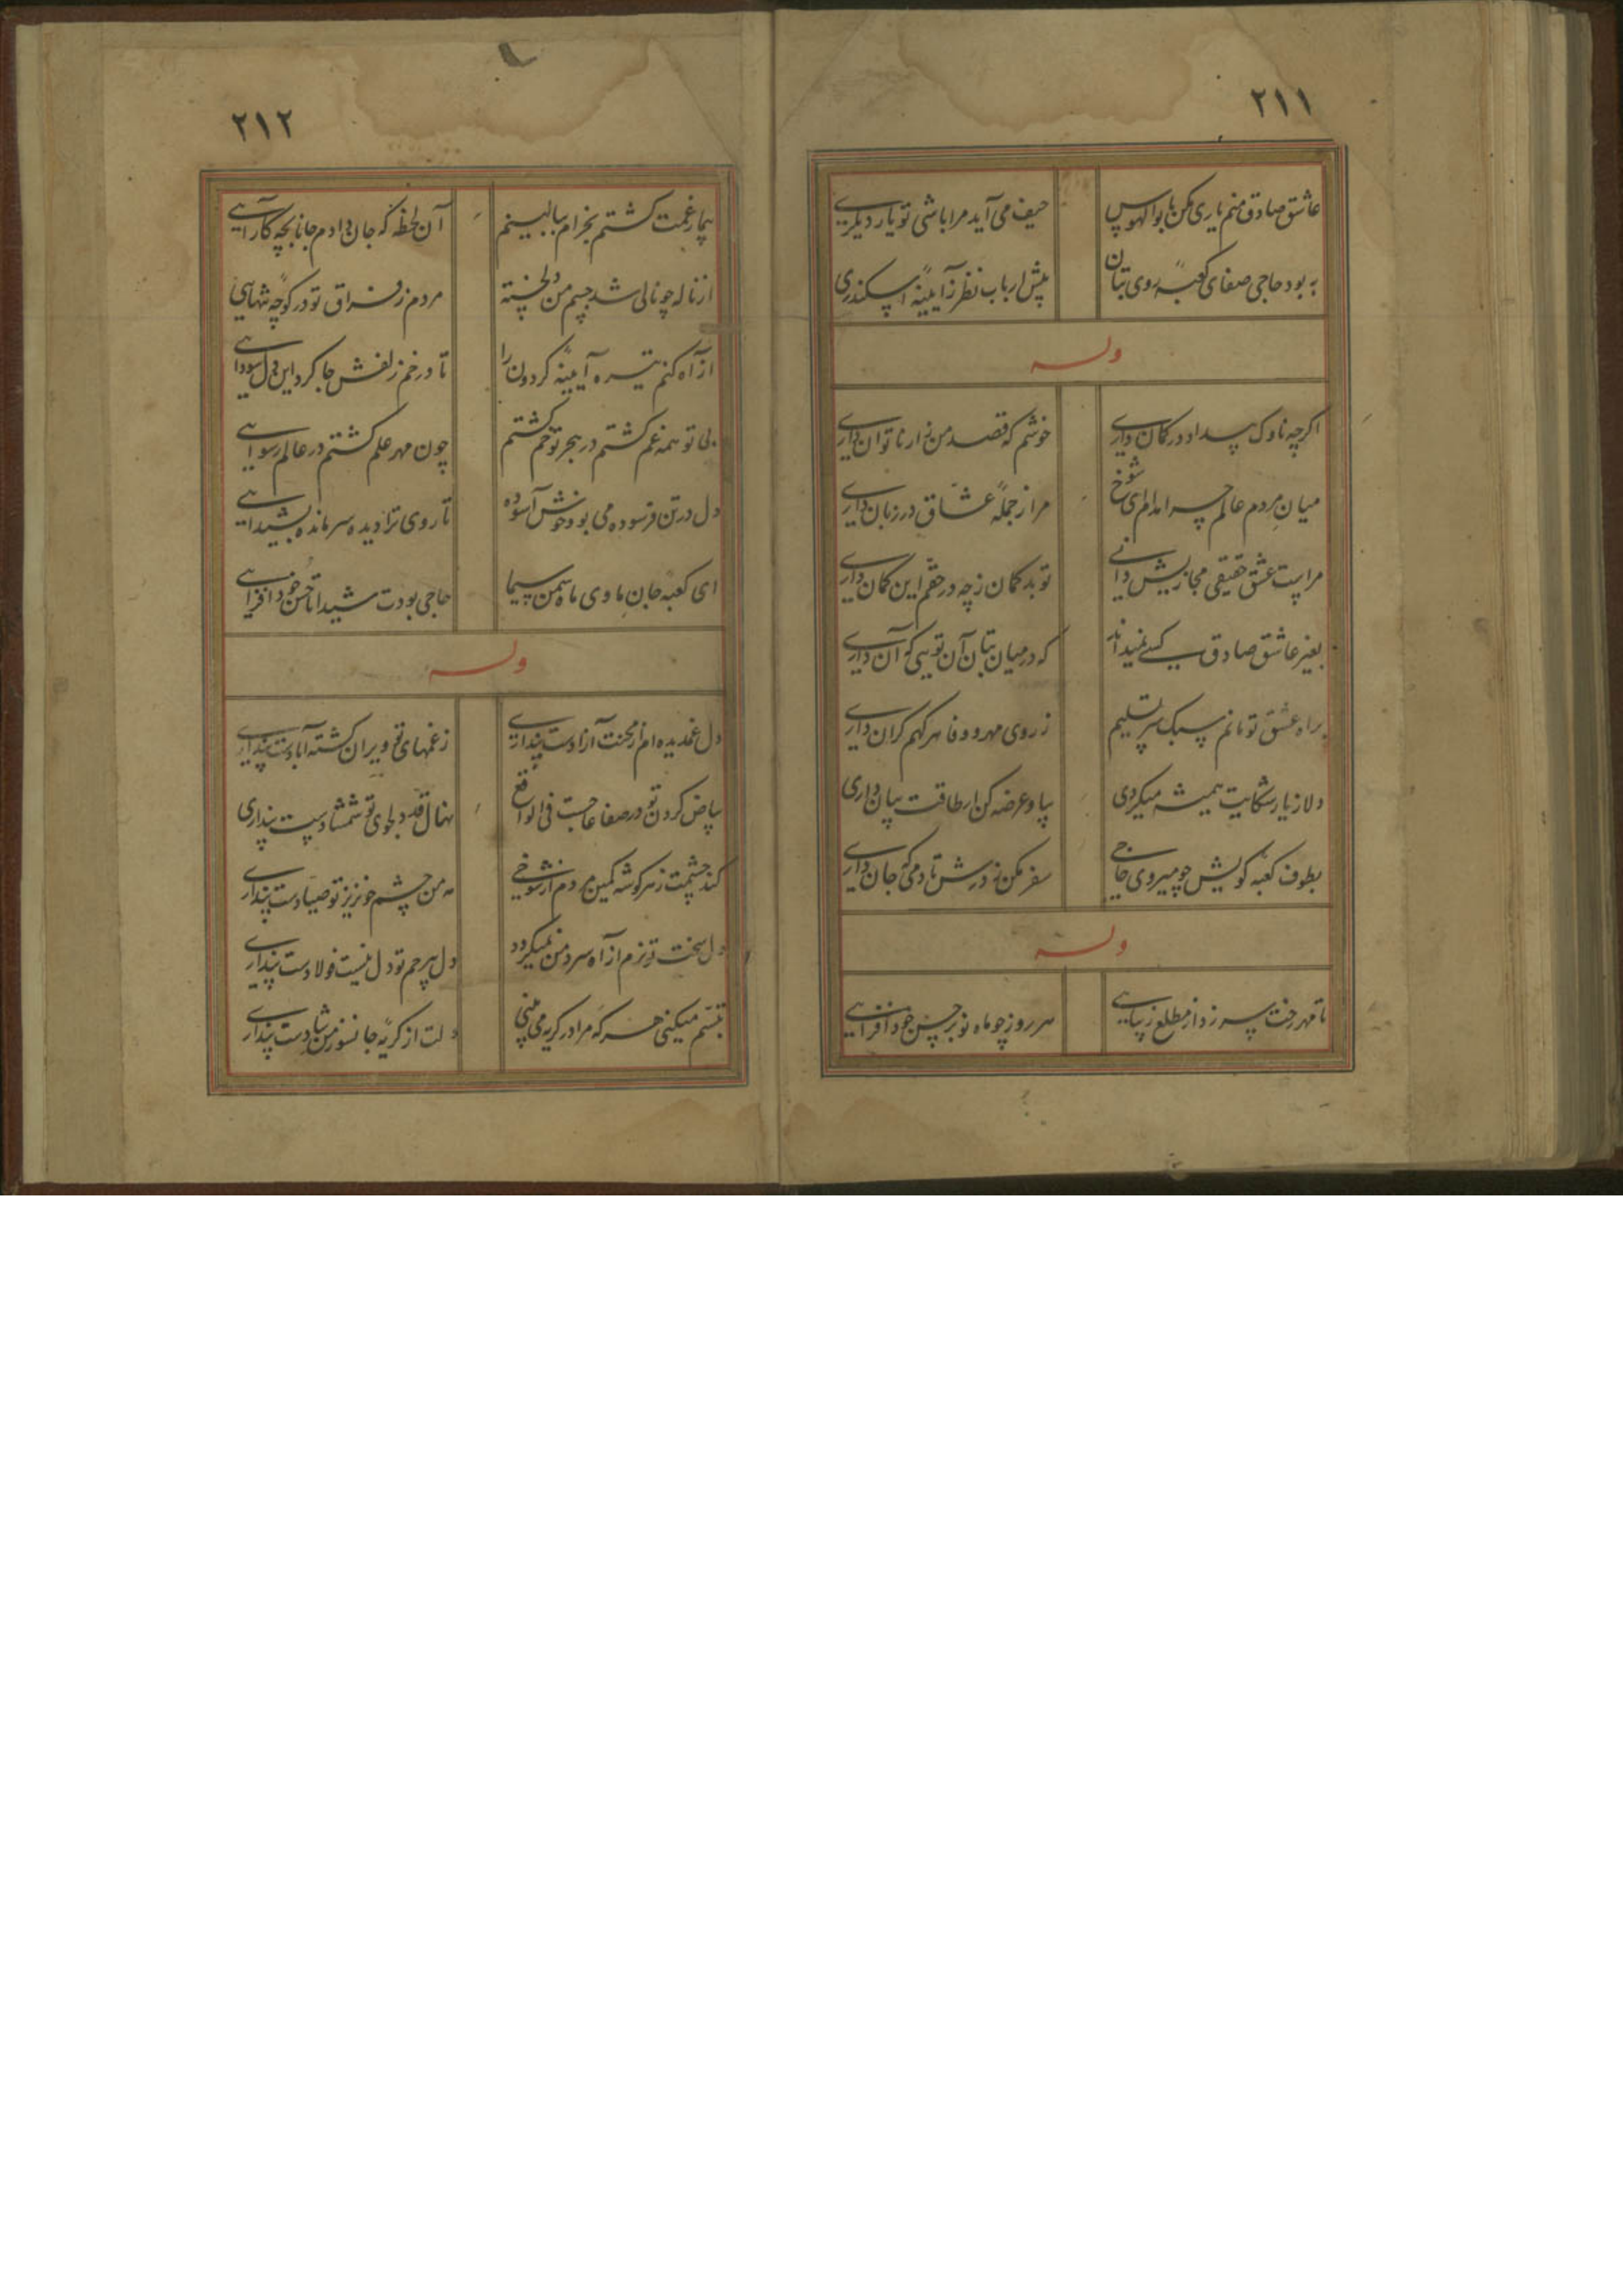 ۲۱۱
عاشق صادق منم یاری مکن با بوالهوس حیف می آید مرا باشی تو یار دیگری
به بود حاجی صفای کعبه روی بتان پیش ارباب نظر ز آیینه اسکندری
وله
اگرچه ناوک بیداد در کمان داری خوشم که قصد من زار ناتوان داری
میان مردم عالم چرا مدام ای شوخ مرا ز جمله عشاق در زبان داری
مراست عشق حقیقی مجازیش دانی تو بد گمان ز چه در حقم این گمان داری
بغیر عاشق صادق کسی نمیداند که در میان بتان آن تویی که آن داری
براه عشق تو مانم سبک سر تسلیم ز روی مهر و وفا هر گهم گران داری
دلا ز یار شکایت همیشه میکردی بیا و عرضه کن ار طاقت بیان داری
بطوف کعبه کویش چو میروی حاجی سفر مکن ز درش تا دمی که جان داری
وله
تا مهر رخت سر زد از مطلع زیبایی هر روز چو ماه نو بر حسن خود افزایی
۲۱۲
بیمار غمت گشتم بخرام ببالینم آن لحظه که جان دادم جانا بچه کار آیی
از ناله چو نالی شد جسم من دلخسته مردم ز فراق تو در کوچه تنهایی
از آه کنم تیره آیینه گردون را تا در خم زلفش جا کرد این دل سودایی
بی تو همه غم گشتم در هجر تو خم گشتم چون مهر علم گشتم در عالم رسوایی
دل در تن فرسوده می بود خوش آسوده تا روی ترا دیده سر مانده بشیدایی
ای کعبه جان ما وی ماه سمن سیما حاجی بودت شیدا تا حسن خود افزایی
وله
دل غمدیده ام از محنت آزادست پنداری ز غمهای تو ویران گشته آبادست پنداری
بیاض گردن تو در صفا عاجست فی الواقع نهال قد دلجوی تو شمشادست پنداری
کند چشمت ز هر گوشه کمین مردم از شوخی مه من چشم خونریز تو صیادست پنداری
دل سخت تو نرم از آه سرد من نمیگردد دل بیرحم تو دل نیست فولادست پنداری
تبسم میکنی هر گه مرا در گریه می بینی دلت از گریه جانسوز من شادست پنداری